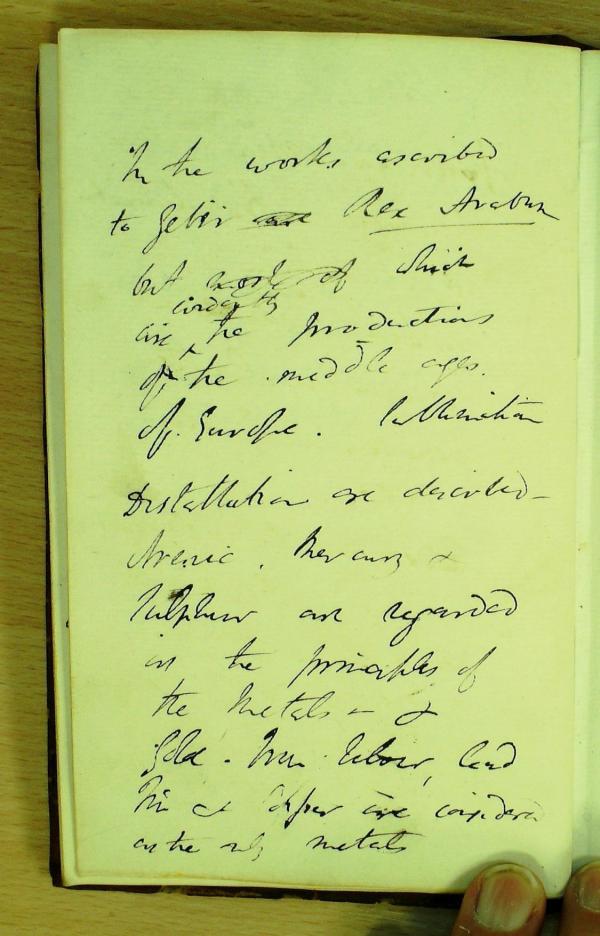 In the works ascribed
to Geber are Rex Arabum
but most of which
evidently
are the productions
of the middle ages.
of Europe. Sublimation
Distillation are described -
Arsenic. Mercury &
Sulphur are regarded
as the principles of
the Metals - &
Gold - Iron Silver, lead
Tin & Copper are considered
as the only metals